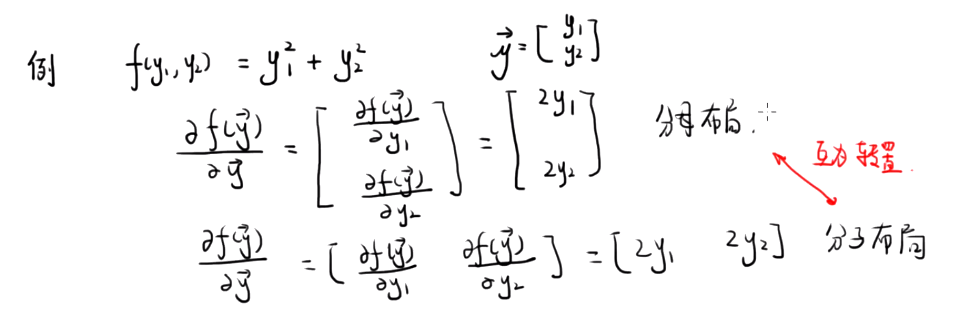 例 f(y₁,y₂) = y₁² + y₂² \vec{y} = \begin{bmatrix} y_1 \\ y_2 \end{bmatrix}
\frac{\partial f(\vec{y})}{\partial \vec{y}} = \begin{bmatrix} \frac{\partial f(\vec{y})}{\partial y_1} \\ \frac{\partial f(\vec{y})}{\partial y_2} \end{bmatrix} = \begin{bmatrix} 2y_1 \\ 2y_2 \end{bmatrix} 分母布局.
互为转置.
\frac{\partial f(\vec{y})}{\partial \vec{y}} = \begin{bmatrix} \frac{\partial f(\vec{y})}{\partial y_1} & \frac{\partial f(\vec{y})}{\partial y_2} \end{bmatrix} = \begin{bmatrix} 2y_1 & 2y_2 \end{bmatrix} 分子布局